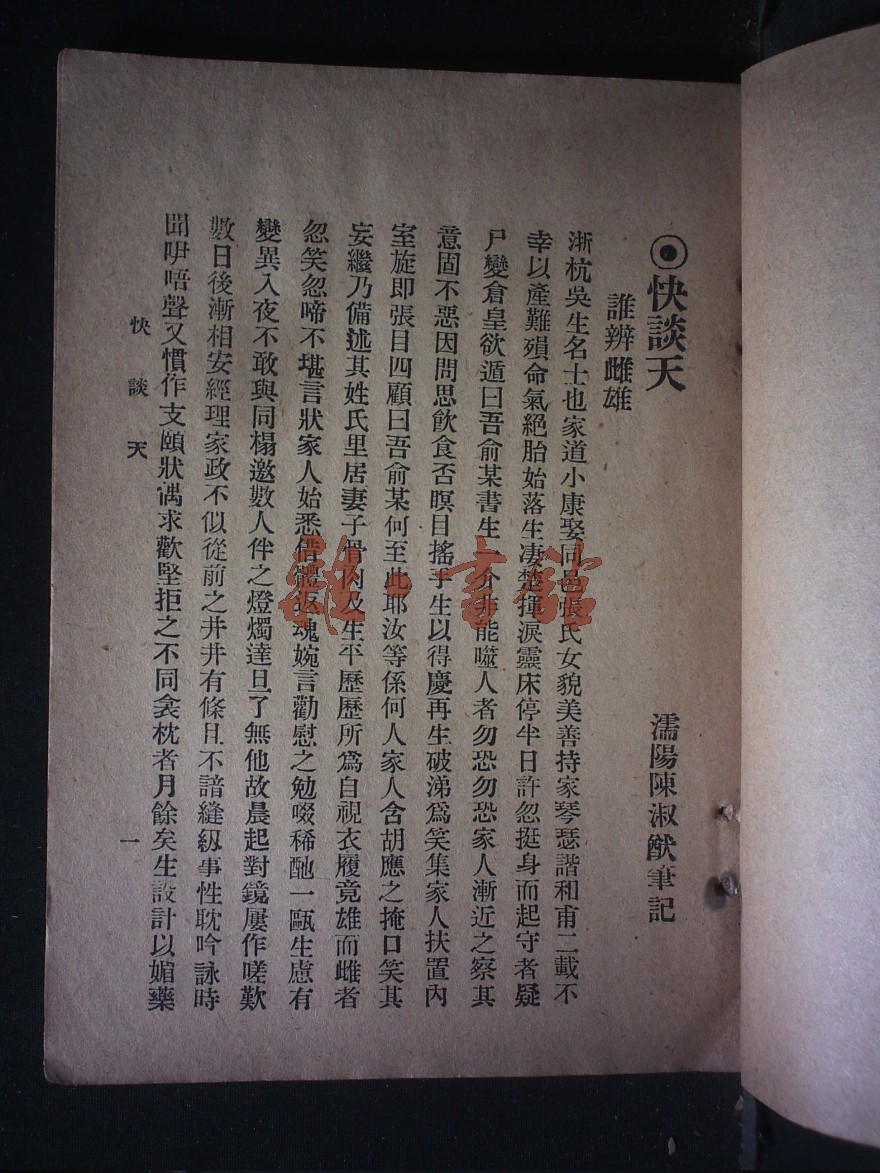 ⦿快談天
濡陽陳淑猷筆記
誰辨雌雄
浙杭吳生名士也家道小康娶同邑張氏女貌美善持家琴瑟諧和甫二載不
幸以產難殞命氣絕胎始落生凄楚揮淚靈床停半日許忽挺身而起守者疑
尸變倉皇欲遁曰吾俞某書生一介非能噬人者勿恐勿恐家人漸近之察其
意固不惡因問思飲食否瞑目搖手生以得慶再生破涕爲笑集家人扶置內
室旋即張目四顧曰吾俞某何至此耶汝等係何人家人含胡應之掩口笑其
妄繼乃備述其姓氏里居妻子骨肉及生平歷歷所爲自視衣履竟雄而雌者
忽笑忽啼不堪言狀家人始悉借體返魂婉言勸慰之勉啜稀酏一甌生慮有
變異入夜不敢與同榻邀數人伴之燈燭達旦了無他故晨起對鏡屢作嗟歎
數日後漸相安經理家政不似從前之井井有條且不諳縫級事性耽吟詠時
聞咿唔聲又慣作支頤狀偶求歡堅拒之不同衾枕者月餘矣生設計以媚藥
快談天
一
雜·書館